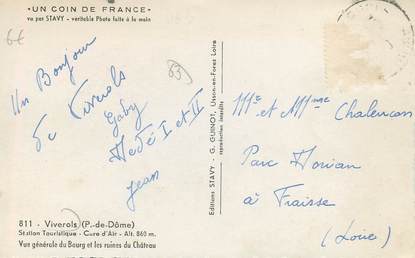 "UN COIN DE FRANCE"
vu par STAVY - veritable Photo faite à la main
6€
63
Un Bonjour
de Viverols
Gaby
Dédé I et II
Jean
Editions STAVY - G. GUINOT, Usson-en-Forez Loire
reproduction interdite
Mr et Mme Chalencon
Parc
à Fraisse
(Loire)
811 - Viverols (P.-de-Dôme)
Station Touristique - Cure d'Air - Alt. 860 m.
Vue générale du Bourg et les ruines du Château